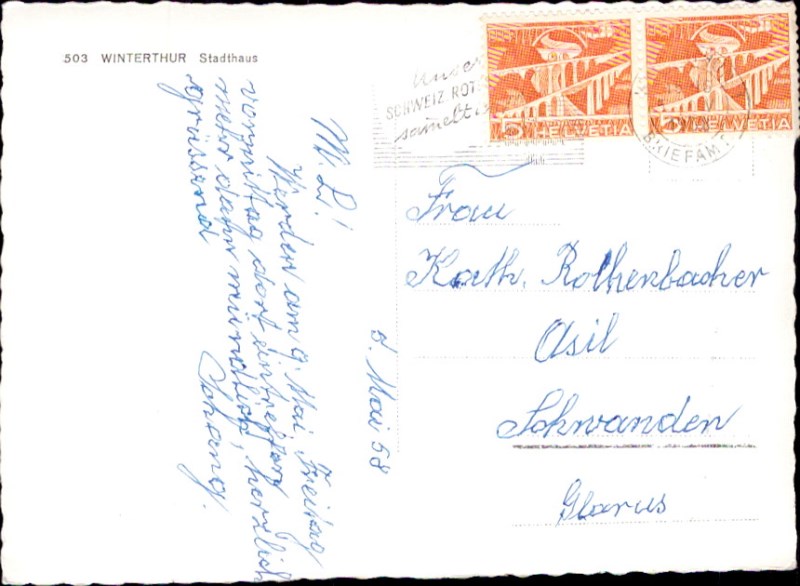 503 WINTERTHUR Stadthaus
Unser
SCHWEIZ. ROT
sammelt
5 HELVETIA
5 HELVETIA
BRIEFAM
5. Mai 58
M. L!
Werden am 9. Mai Freitag
vormittag dort eintreffen
mehr dann mündlich, herzlich
grüssend
Frau
Kath. Rothenbacher
Asil
Schwanden
Glarus